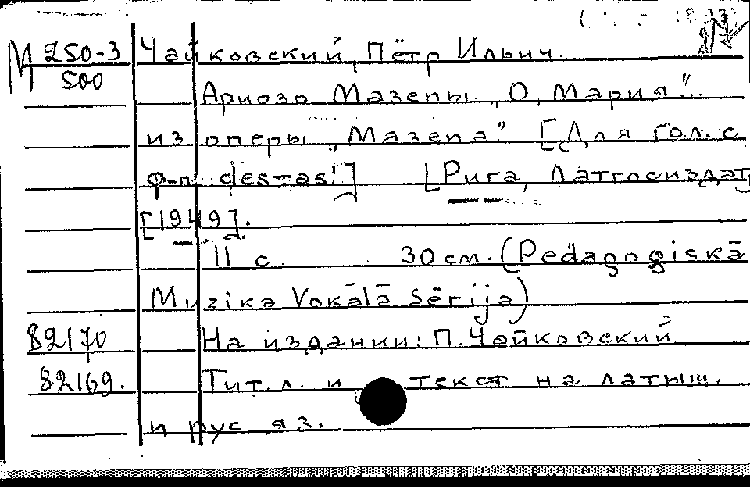 М 250-3 Чайковский, Пётр Ильич.
500
Ариозо Мазепы „О, Мария".
из оперы „Мазепа" [Для гол. с
ф-п. des-as'] [Рига, Латгосиздат,
[1949].
11 с. 30 см. (Pedagoģiskā
Mūzika Vokālā sērija)
82170 На издании: П. Чайковский
82169. Тит. л. и текст на латыш.
и рус. яз.